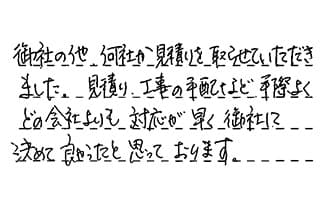 御社の他、何社か見積りを取らせていただき
ました。見積り、工事の手配など手際よく
どの会社よりも対応が早く御社に
決めて良かったと思っております。